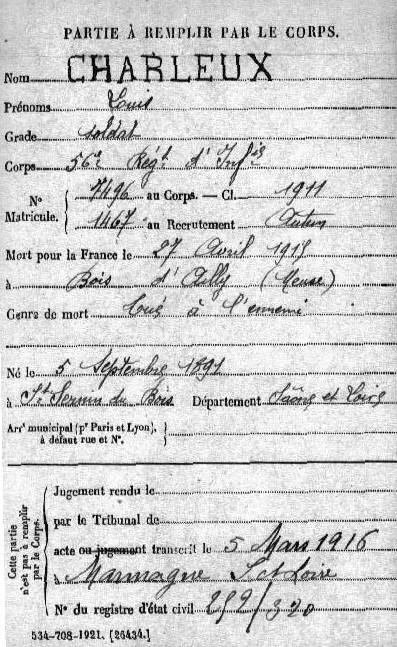 PARTIE À REMPLIR PAR LE CORPS.
Nom CHARLEUX
Prénoms Louis
Grade soldat
Corps 56e Régt d'Infie
No Matricule. 7496 au Corps. — Cl. 1911
1467 au Recrutement Autun
Mort pour la France le 27 Avril 1915
à Bois d'Ailly (Meuse)
Genre de mort tué à l'ennemi
Né le 5 Septembre 1891
à St Sernin du Bois Département Saône et Loire
Arrt municipal (pr Paris et Lyon), à défaut rue et No.
Cette partie n'est pas à remplir par le Corps.
Jugement rendu le
par le Tribunal de
acte ou jugement transcrit le 5 Mars 1916
à Marmagne S et Loire
No du registre d'état civil 259/320
534-708-1921. [26434.]